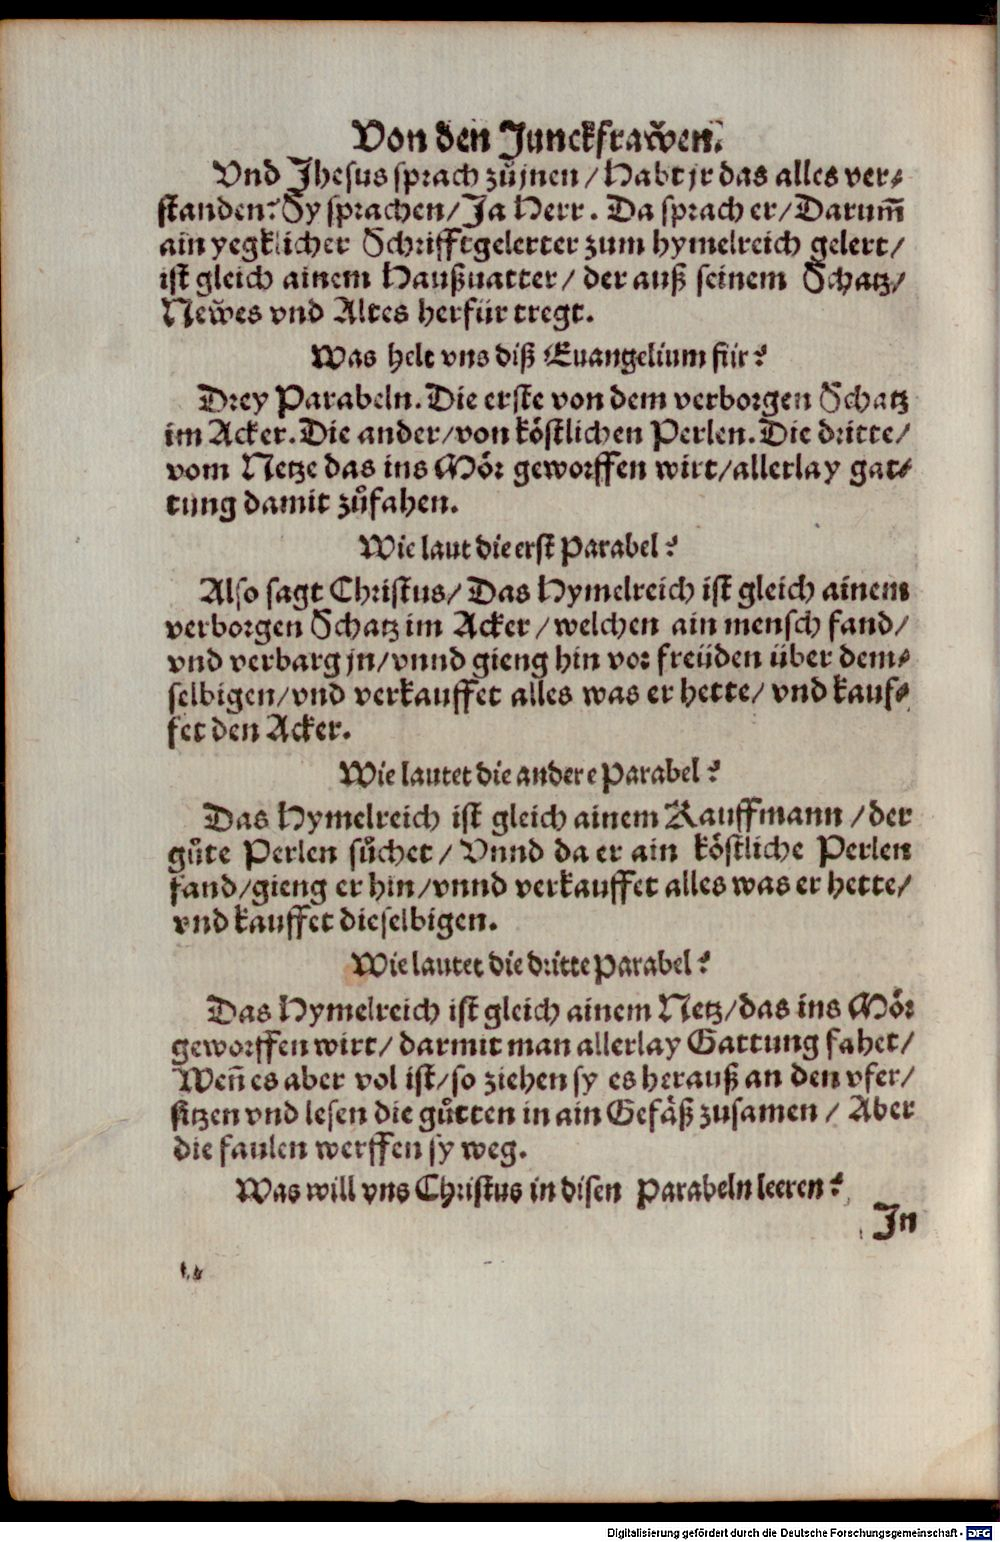 Von den Junckfraw̃en.
Vnd Jhesus sprach zůjnen / Habt jr das alles ver⸗
standen? Sy sprachen / Ja Herr. Da sprach er / Darum̃
ain yegklicher Schrifftgelerter zum hymelreich gelert /
ist gleich ainem Haußuatter / der auß seinem Schatz /
New̃es vnd Altes herfür tregt.
Was helt vns diß Euangelium für?
Drey Parabeln. Die erste von dem verborgen Schatz
im Acker. Die ander / von köstlichen Perlen. Die dritte /
vom Netze das ins Mör geworffen wirt / allerlay gat⸗
tung damit zůfahen.
Wie laut die erst Parabel?
Also sagt Christus / Das Hymelreich ist gleich ainem
verborgen Schatz im Acker / welchen ain mensch fand /
vnd verbarg jn / vnnd gieng hin vor freüden über dem⸗
selbigen / vnd verkauffet alles was er hette / vnd kauf⸗
fet den Acker.
Wie lautet die andere Parabel?
Das Hymelreich ist gleich ainem Kauffmann / der
gůte Perlen sůchet / Vnnd da er ain köstliche Perlen
fand / gieng er hin / vnnd verkauffet alles was er hette /
vnd kauffet dieselbigen.
Wie lautet die dritte Parabel?
Das Hymelreich ist gleich ainem Netz / das ins Mör
geworffen wirt / darmit man allerlay Gattung fahet /
Weñ es aber vol ist / so ziehen sy es herauß an den vfer /
sitzen vnd lesen die gůtten in ain Gefäß zusamen / Aber
die faulen werffen sy weg.
Was will vns Christus in disen Parabeln leeren?
Jn
Digitalisierung gefördert durch die Deutsche Forschungsgemeinschaft - DFG